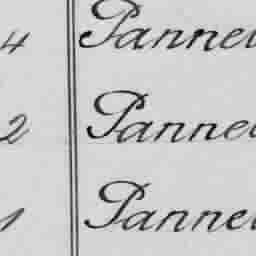 4 Pannel
2 Pannel
1 Pannel